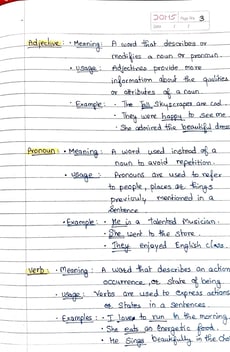 Page No. 3
Date
Adjective : • Meaning: A word that describes or
modifies a noun or pronoun.
• Usage: Adjectives provide more
information about the qualities
or attributes of a noun.
• Example: • The Tall Skyscraper are cool..
• They were happy to see me.
• She admired the beautiful dress
Pronoun : • Meaning: A word used instead of a
noun to avoid repetition.
• Usage : Pronouns are used to refer
to people, places or things
previously mentioned in a
sentence
• Example : • He is a talented Musician.
• She went to the store.
• They enjoyed English class.
Verb : • Meaning : A word that describes an action
occurrence, or state of being
Usage: Verbs are used to express actions
or States in a Sentences.
• Examples : • I love to run in the morning.
• She eats an energetic food.
• He Sings beautifully in the